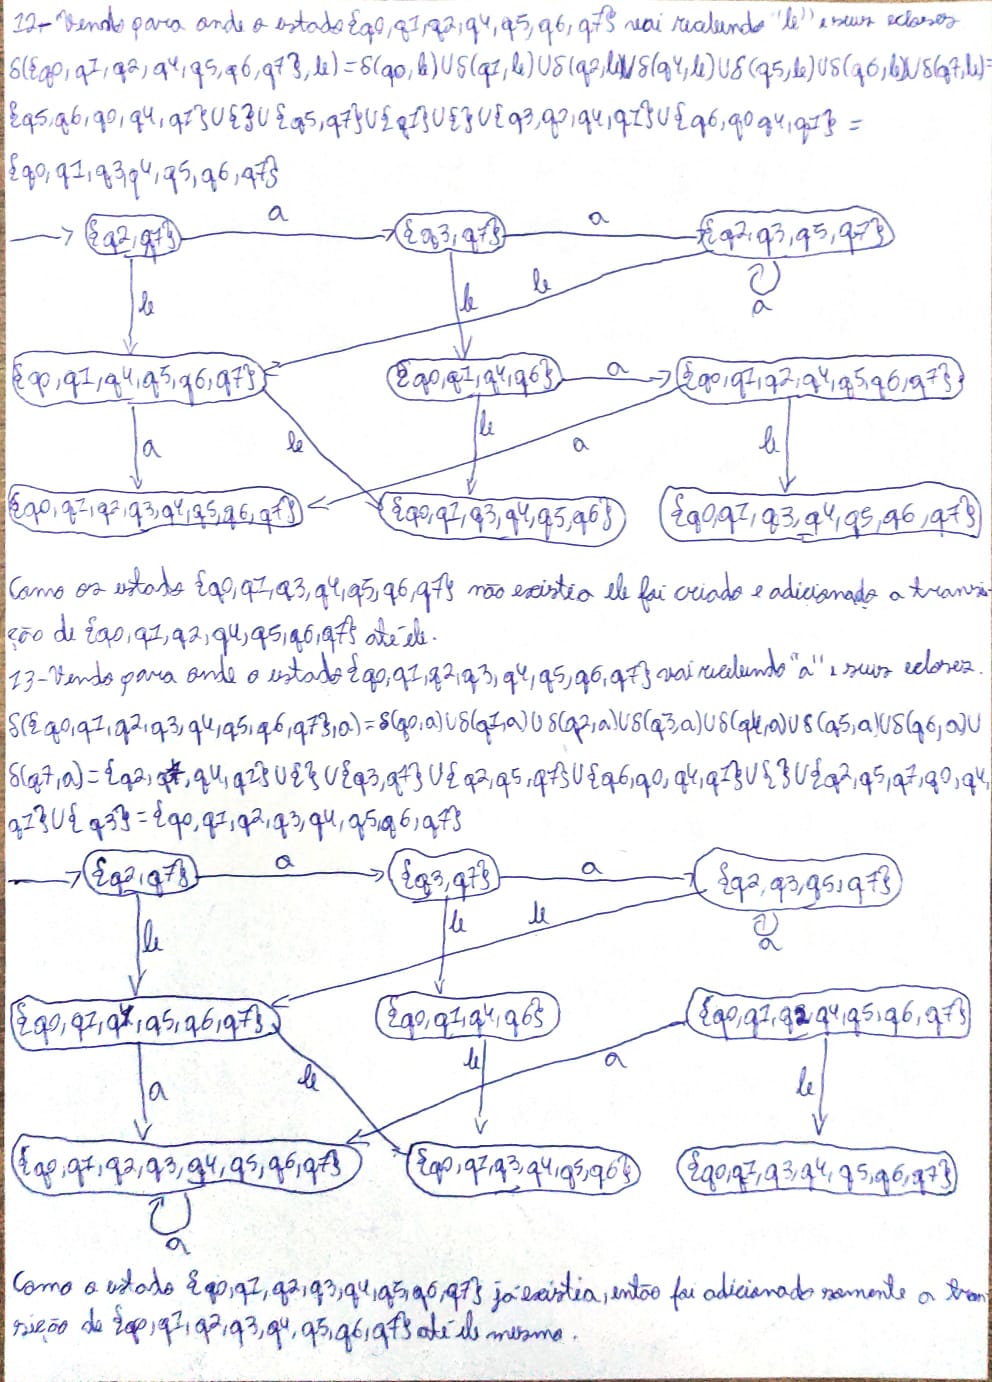 12- Vendo para onde o estado {q0, q1, q2, q4, q5, q6, q7} vai recebendo "b" e seus eclosez
δ({q0, q1, q2, q4, q5, q6, q7}, b) = δ(q0, b) U δ(q1, b) U δ(q2, b) U δ(q4, b) U δ(q5, b) U δ(q6, b) U δ(q7, b) =
{q5, q6, q0, q4, q1} U { } U {q5, q7} U {q1} U { } U {q3, q0, q4, q1} U {q6, q0 q4, q1} =
{q0, q1, q3, q4, q5, q6, q7}
{q2, q7} a {q3, q7} a {q2, q3, q5, q7}
b b b a
{q0, q1, q4, q5, q6, q7} {q0, q1, q4, q6} a {q0, q1, q2, q4, q5, q6, q7}
a b b a b
{q0, q1, q2, q3, q4, q5, q6, q7} {q0, q1, q3, q4, q5, q6} {q0, q1, q3, q4, q5, q6, q7}
Como os estado {q0, q1, q3, q4, q5, q6, q7} não existia ele foi criado e adicionado a transi-
ção de {q0, q1, q2, q4, q5, q6, q7} até ele.
13- Vendo para onde o estado {q0, q1, q2, q3, q4, q5, q6, q7} vai recebendo "a" e seus eclosez.
δ({q0, q1, q2, q3, q4, q5, q6, q7}, a) = δ(q0, a) U δ(q1, a) U δ(q2, a) U δ(q3, a) U δ(q4, a) U δ(q5, a) U δ(q6, a) U
δ(q7, a) = {q2, q7, q4, q1} U { } U {q3, q7} U {q2, q5, q7} U {q6, q0, q4, q1} U { } U {q2, q5, q7, q0, q4,
q1} U {q3} = {q0, q1, q2, q3, q4, q5, q6, q7}
{q2, q7} a {q3, q7} a {q2, q3, q5, q7}
b b b a
{q0, q1, q4, q5, q6, q7} {q0, q1, q4, q6} {q0, q1, q2, q4, q5, q6, q7}
a b b a b
{q0, q1, q2, q3, q4, q5, q6, q7} {q0, q1, q3, q4, q5, q6} {q0, q1, q3, q4, q5, q6, q7}
a
Como o estado {q0, q1, q2, q3, q4, q5, q6, q7} já existia, então foi adicionado somente a tran-
sição de {q0, q1, q2, q3, q4, q5, q6, q7} até ele mesmo.